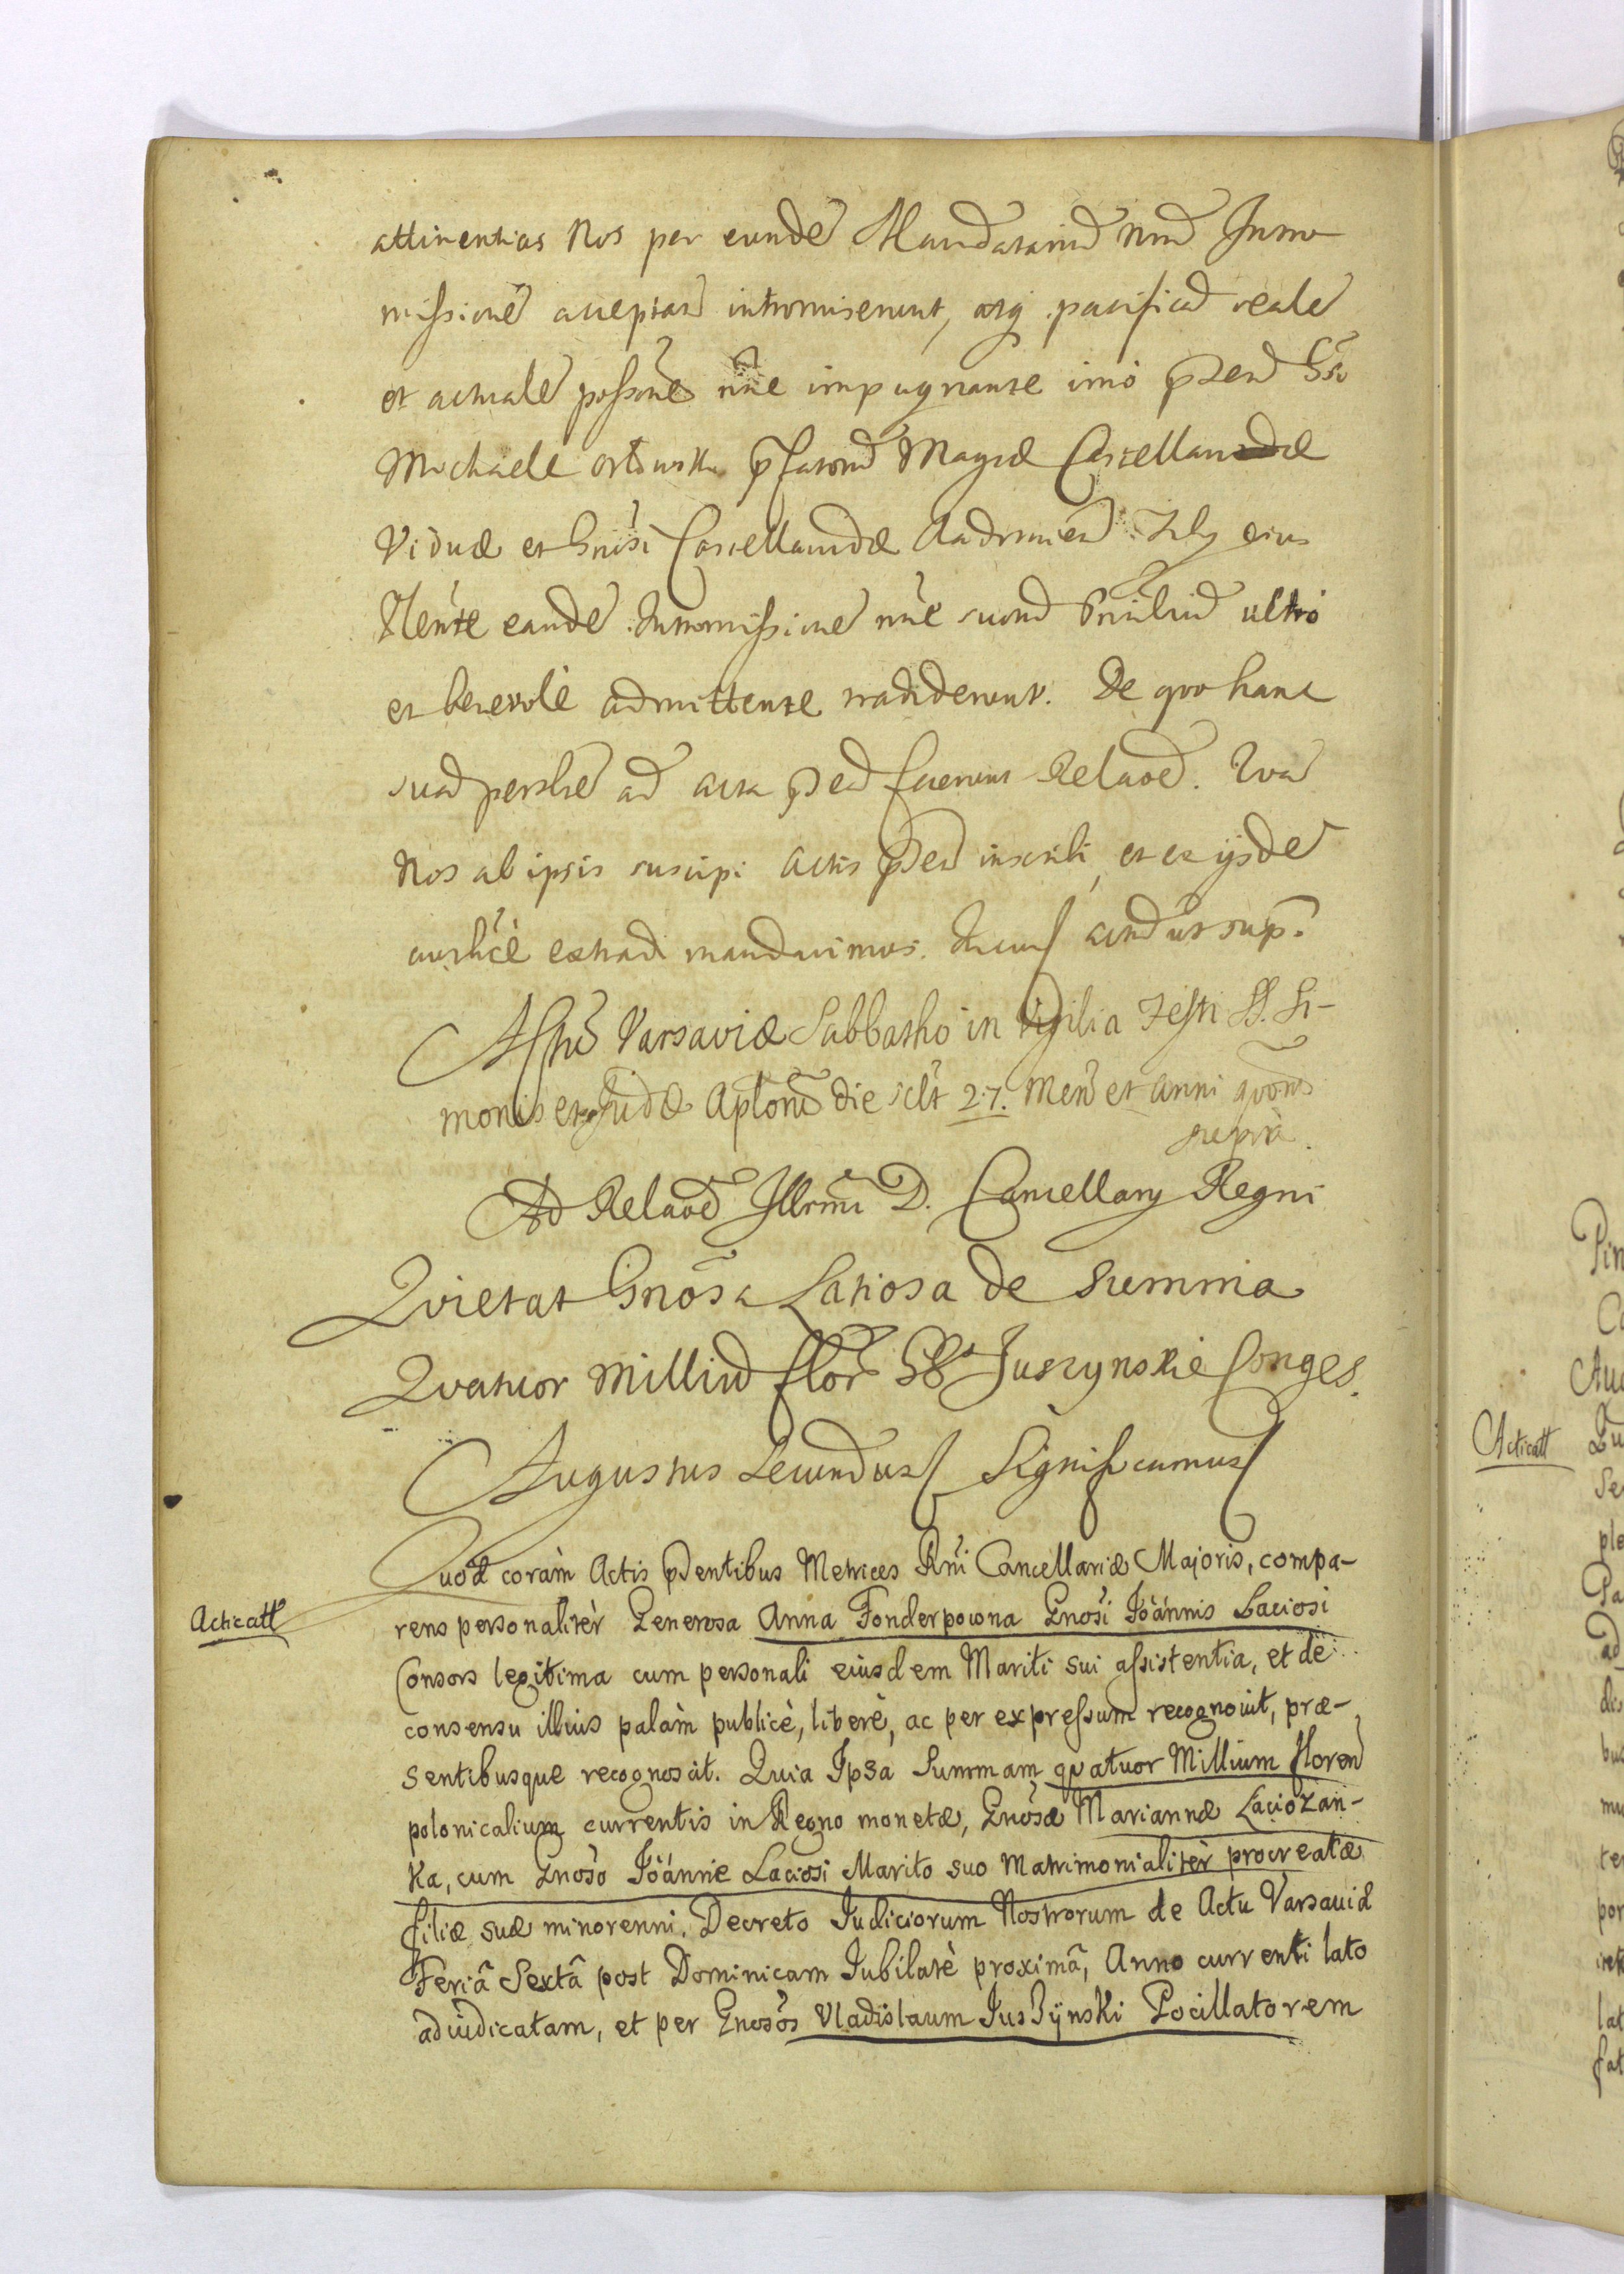 attinentias Nos per eundē Mandatariū nrūm Intro
missionē acceptare intromiserunt, atq pacificā realē
et actualē possonē nīne impugnante imò pden Gso
Michaele prfatorū Magcæ Castellanidæ
Viduæ et Gnosi Castellanidæ filij eius
Nem̄te eandē Intromissionē nīne suorū ultrò
et benevolè admittente tradiderunt. De quo hanc
suā persolē ad acta pden fecerunt Relaōē. Quā
Nos ab ipsis suscipi Actis pden inscribi, et ex ijsdē
autheē extradi mandavimus. In cuiꝰ actū ut sup.
Actū Varsaviæ Sabbatho in Vigilia Festi SS. Si-
monis et Judæ Aplorū die sclt 27. Men et Anni quōrs
suprà.
Ad Relaōē Illrmī D. Cancellary Regni
Quietat Gnōsa Latiosa de Summa
Quatuor Milliū flor GG Juszynskie Conges.
Augustus Secundus Significamus
Quod coràm Actis pdentibus Metrices Rni Cancellariæ Majoris, compa-
Acticatt
rens personalitèr Generosa Anna Fonderpowna Gnosi Joánnis Laciosi
Consors legitima cum personali eiusdem Mariti sui assistentia, et de
consensu illius palàm publicè, liberè, ac per expressum recognovit, præ-
sentibusque recognoscit. Quia Ipsa Summam quatuor Millium floren
polonicalium currentis in Regno monetæ, Gnosæ Mariannæ Laciozan-
ka, cum Gnoso Joánne Laciosi Marito suo Matrimonialitèr procreatæ
filiæ suæ minorenni, Decreto Iudiciorum Nostrorum de Actu Varsaviæ
Feriâ Sextâ post Dominicam Iubilatè proximâ, Anno currenti lato
adiudicatam, et per Gnosos Vladislaum Juszÿnski Pocillatorem
Acticatt